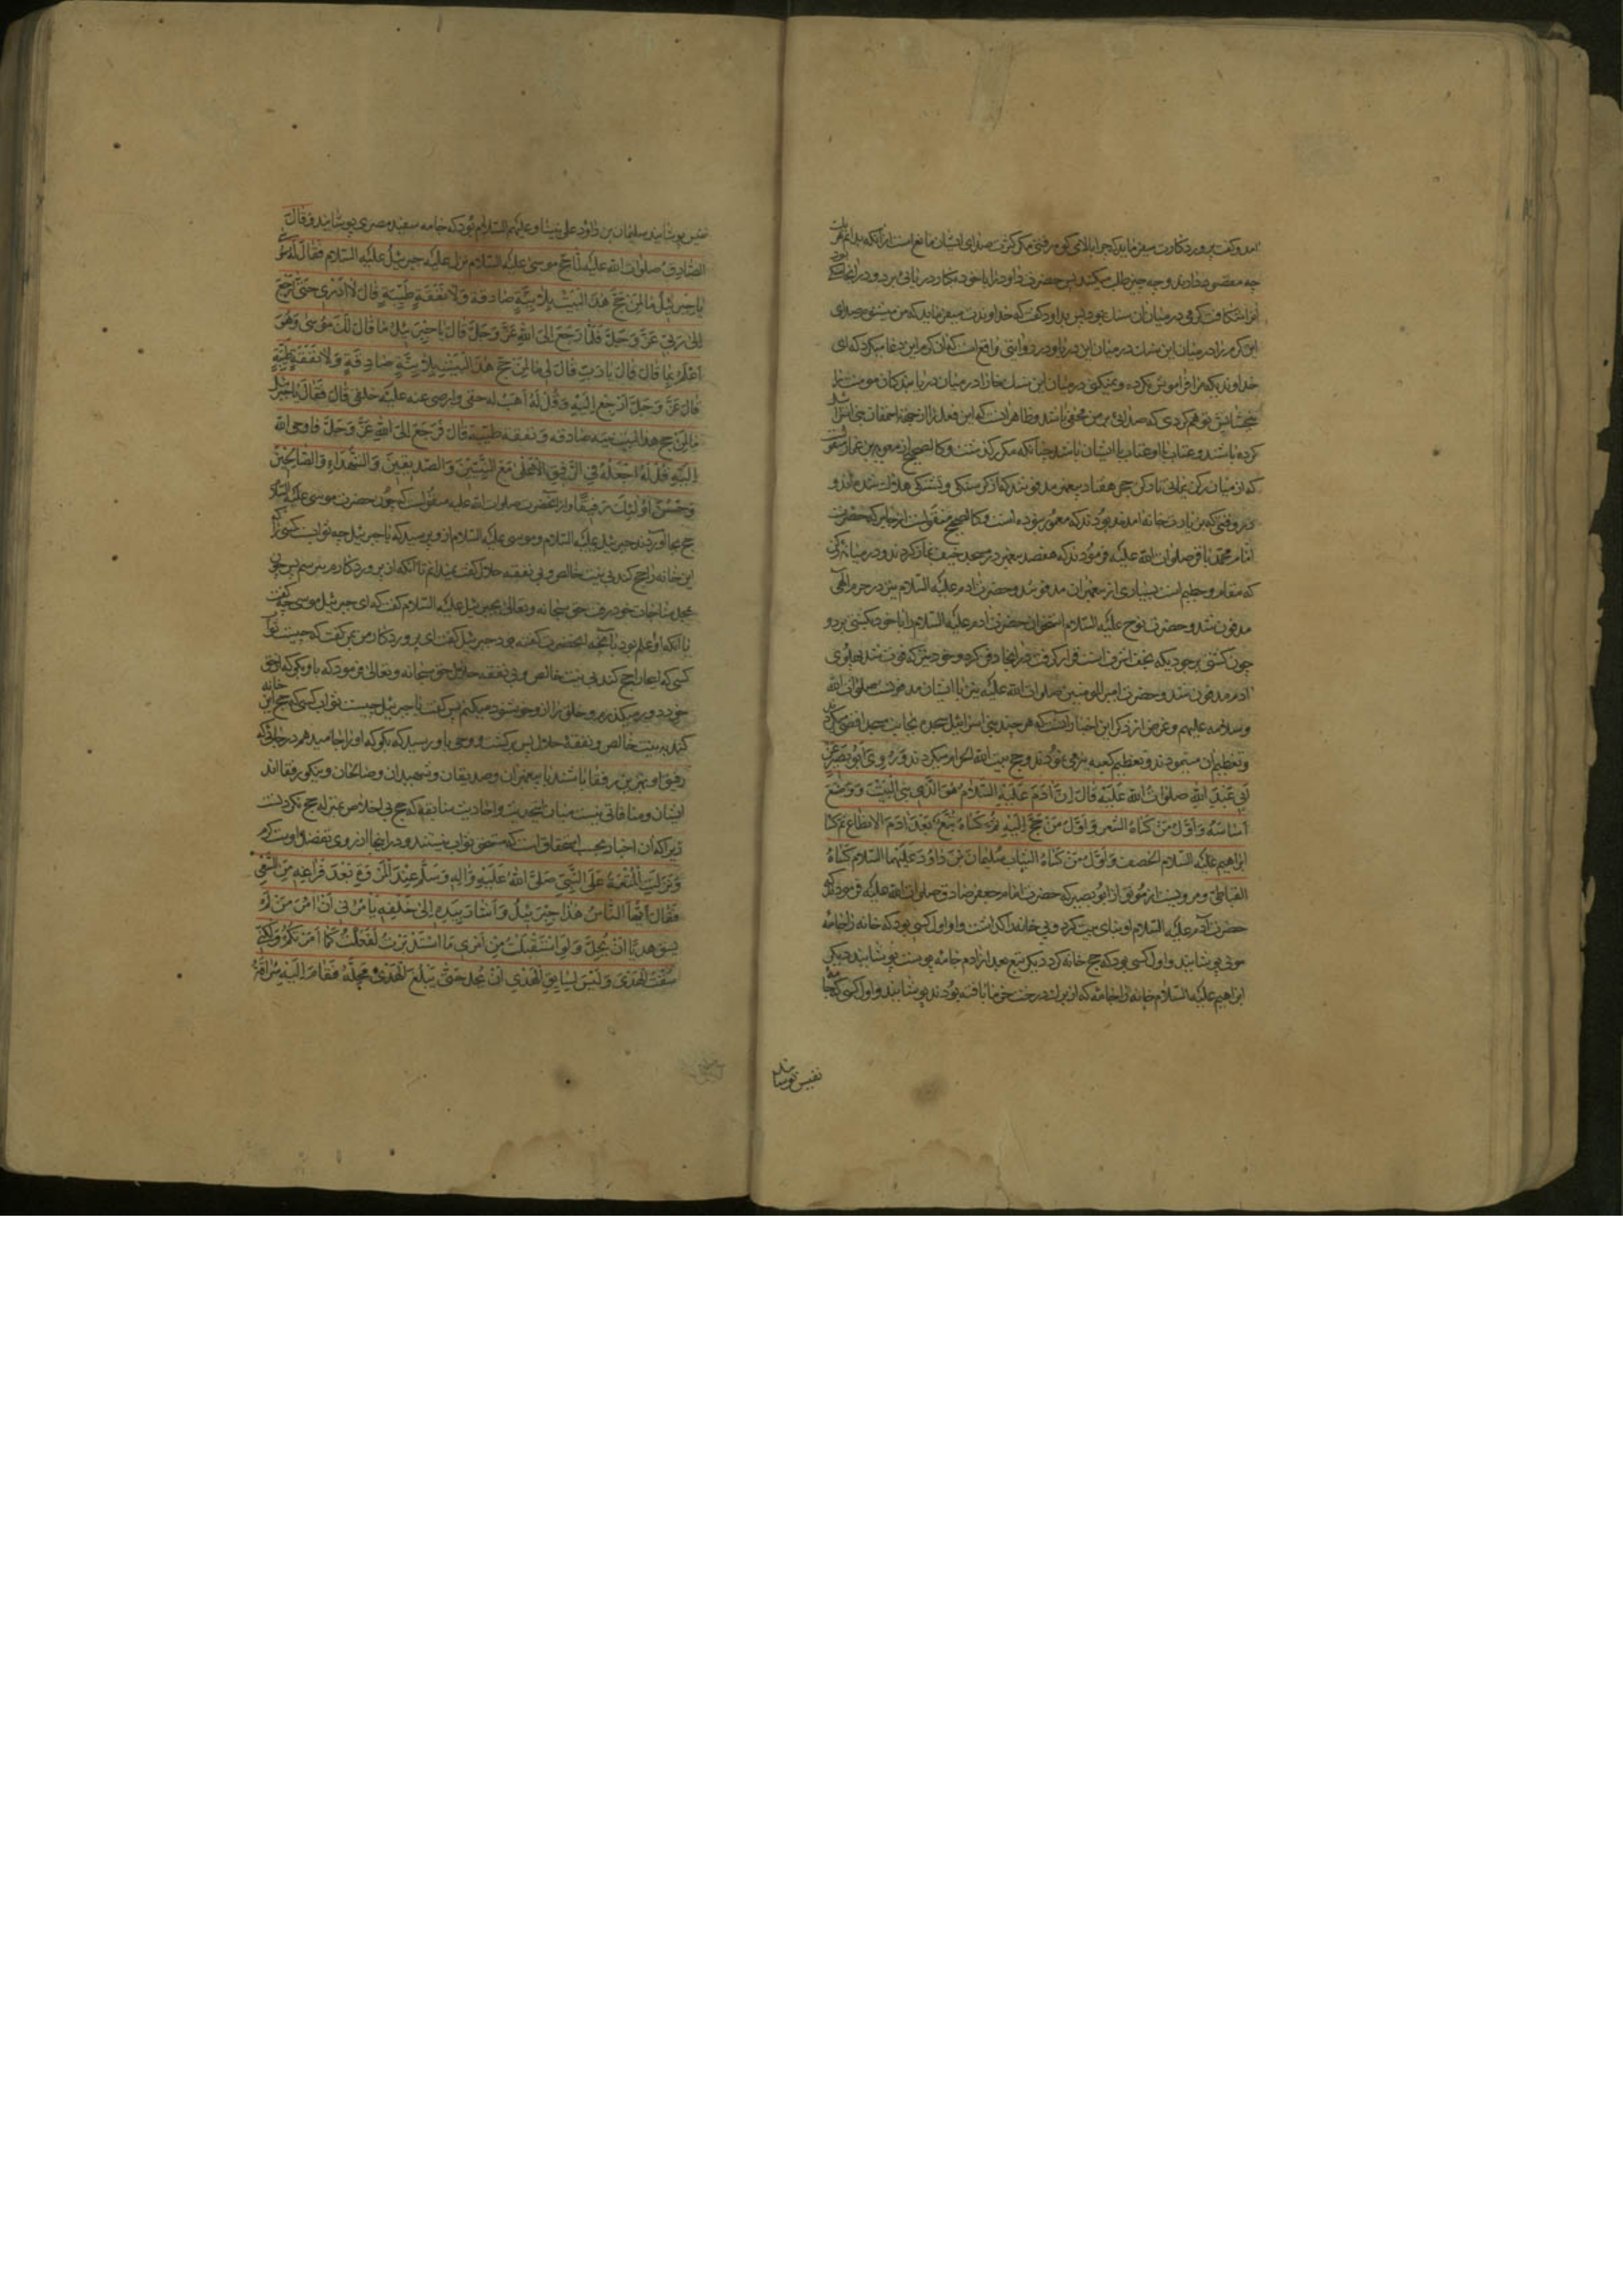 امد و گفت پروردگارت میفرماید که چرا بالای کوه رفتی مگر کثرت صدای ایشان مانع است از آنکه بدانم هر یک
چه مقصود دارند و چه چیز طلب میکنند پس حضرت داود را با خود بکنار دریائی برد و در انجا
خداوندیکه مرا فراموش نکرده و نمیکنی در میان این سنک مخاز ادر میان دریا بندکان مومنت را
کرده باشند و عتاب با او عتاب با ایشان باشد چنانکه مکرر گذشت و کالصحیح از معویة بن عمار منقول
که از میان رکن یمانی تا رکن حجر هفتاد پیغمبر مدفونند که از گرسنگی و تشنگی هلاک شده‌اند و
در وقتی که بزیارت خانه امده بودند که معمور نبوده است و کالصحیح منقولست از جابر که حضرت
امام محمد باقر صلوات الله علیه فرمودند که هفتصد پیغمبر در مسجد خیف نماز کردند و در میانه رکن
که مقام و حطیم است بسیاری از پیغمبران مدفونند و حضرت ادم علیه السلام نیز در حرم الهی
مدفون شد و حضرت نوح علیه السلام استخوان حضرت ادم علیه السلام را با خود بکشتی برد و
چون کشتی بر جودی که نجف اشرف است قرار گرفت در انجا دفن کرد و خود نیز که فوت شد پهلوی
ادم مدفون شد و حضرت امیر المومنین صلوات الله علیه نیز با ایشان مدفونست صلوات الله
و سلامه علیهم و غرض از ذکر این اخبار انست که هر چند بنی اسرائیل سجده بجانب مسجد اقصی میکردند
و تعظیم ان مینمودند و تعظیم کعبه نیز می نمودند و حج بیت الله الحرام میکردند وَرُوِیَ اَبُو بَصیرٍ عَنْ
اَبی عَبْدِ اللهِ صلوات الله عَلَیْهِ قالَ اِنَّ آدَمَ عَلَیْهِ السَّلامُ هُوَ الَّذی بَنَی الْبَیْتَ وَ وَضَعَ
اَساسَهُ وَ اَوَّلُ مَنْ کَساهُ الشَّعر وَ اَوَّلُ مَنْ حَجَّ اِلَیْهِ ثُمَّ کَساهُ تُبَّعٌ بَعْدَ آدَمَ الانطاع ثم کسا
ابراهیم علیه السلام الخصف وَ اَوَّلُ مَنْ کَساهُ الثیاب سُلَیْمانُ بْنُ داوُدَ عَلَیْهِمَا السَّلام کَساهُ
القباطی و مرویست از موثق از ابو بصیر که حضرت امام جعفر صادق صلوات الله علیه فرمودند که
حضرت آدم علیه السلام او بنای بیت کرد و پی خانه را گذاشت و او اول کسی بود که خانه را جامه
موئی پوشانید و اول کسی بود که حج خانه کرد دیگر تبع بعد از ادم جامه پوست پوشانید دیگر
ابراهیم علیه السلام خانه را جامه که از برک درخت خرما بافته بودند پوشانید و اول کسی که جامه
نفیس پوشانید
نفیس پوشانید سلیمان بن داود علی نبینا و علیهم السلام بود که جامه سفید مصری پوشانید وَقالَ
الصّادِقُ صلوات الله عَلَیْهِ لَمّا حَجَّ موسی عَلَیْهِ السَّلام نزل عَلَیْهِ جبرئیلُ عَلَیْهِ السَّلام فَقالَ لَهُ مُوسی
یا جبرئیلُ ما لِمَنْ حَجَّ هذَا الْبَیْتَ بِلا نِیَّةٍ صادقة وَلا نَفَقَةٍ طَیِّبَةٍ قالَ لا اَدْری حَتّی اَرْجِعَ
اِلی رَبّی عَزَّ وَجَلَّ فَلَمّا رَجَعَ اِلَی اللهِ عَزَّ وَجَلَّ قالَ یا جَبْرَئیلُ ما قالَ لَکَ مُوسی وَهُوَ
اَعْلَمُ بِما قالَ قالَ یا رَبِّ قالَ لی ما لِمَنْ حَجَّ هذَا الْبَیْتَ بِلا نِیَّةٍ صادِقَةٍ وَلا نَفَقَةٍ طَیِّبَةٍ
قالَ عَزَّ وَجَلَّ اِرْجِعْ اِلَیْهِ وَقُلْ لَهُ اَهَبُ له حقی وارضی عنه علیه خلقی قالَ فَقالَ یا جبرئیل
ما لِمَنْ حج هذا البیت بنیه صادقه و نفقه طیبه قال فَرَجَعَ اِلَی اللهِ عَزَّ وَجَلَّ فاوحی الله
اِلَیْهِ قُلْ لَهُ اَجْعَلُهُ فِی الرَّفیقِ الْاَعْلی مَعَ النَّبِیّینَ وَالصِّدّیقینَ وَالشُّهَداءِ وَالصّالِحینَ
وَحَسُنَ اُولئِکَ رَفیقًا و از انحضرت صلوات الله علیه منقولست که چون حضرت موسی علیه السلام
حج بجا آوردند جبرئیل علیه السلام و موسی علیه السلام از و پرسید که یا جبرئیل چه ثوابست کسی را که
این خانه را حج کند بی نیت خالص و بی نفقه حلال گفت نمیدانم تا آنکه از پروردگارم بپرسم پس چون
بمحل مناجات خود رفت حق سبحانه و تعالی بجبرئیل علیه السلام گفت که ای جبرئیل موسی چه گفت
با آنکه او اعلم بود بانچه انحضرت گفته بود جبرئیل گفت ای پروردگار من بمن گفت که چیست ثواب
کسی که این خانه را حج کند بی نیت خالص و بی نفقه حلال حق سبحانه و تعالی فرمود که باو بگو که از حق
خود در میگذرم و خلق را از و خوشنود میکنم پس گفت یا جبرئیل چیست ثواب کسی که حج این خانه
کند به نیت خالص و نفقه حلال پس برگشت و وحی باو رسید که بگو که او را جا میدهم در جائی که
رفیق او بهترین رفقا باشند با پیغمبران و صدیقان و شهیدان و صالحان و نیکو رفقااند
ایشان و منافاتی نیست میان این حدیث و احادیث سابقه که حج بی اخلاص بمنزله حج نکردنست
زیرا که ان اخبار بحسب استحقاق است که مستحق ثواب نیستند و در اینجا از روی تفضل اوست
وَ نَزَلَتِ الْمُتْعَةُ عَلَی النَّبِیِّ صَلَّی اللهُ عَلَیْهِ وَآلِهِ وَسَلَّم عِنْدَ الْمَرْوَةِ بَعْدَ فَراغِهِ مِنَ السَّعْیِ
فَقالَ اَیُّهَا النّاسُ هذا جَبْرَئیلُ وَ اَشارَ بِیَدِهِ اِلی خَلْفِهِ یَاْمُرُنی اَنْ آمُرَ مَنْ لَمْ
یَسُقْ هَدْیًا اَنْ یُحِلَّ وَ لَوِ اسْتَقْبَلْتُ مِنْ اَمْری مَا اسْتَدْبَرْتُ لَفَعَلْتُ کَما اَمَرْتُکُمْ وَلکِنّی
سُقْتُ الْهَدْیَ وَ لَیْسَ لِسائِقِ الْهَدْیِ اَنْ یُحِلَّ حَتّی یَبْلُغَ الْهَدْیُ مَحِلَّهُ فَقامَ اِلَیْهِ سُراقَةُ